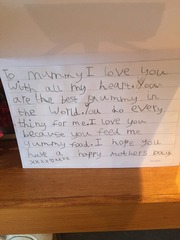 To mummy I love you
with all my heart. Your
are the best mummy in
the world. You do every
thing for me. I love you
because you feed me
yummy food. I hope you
have a happy mothers Day